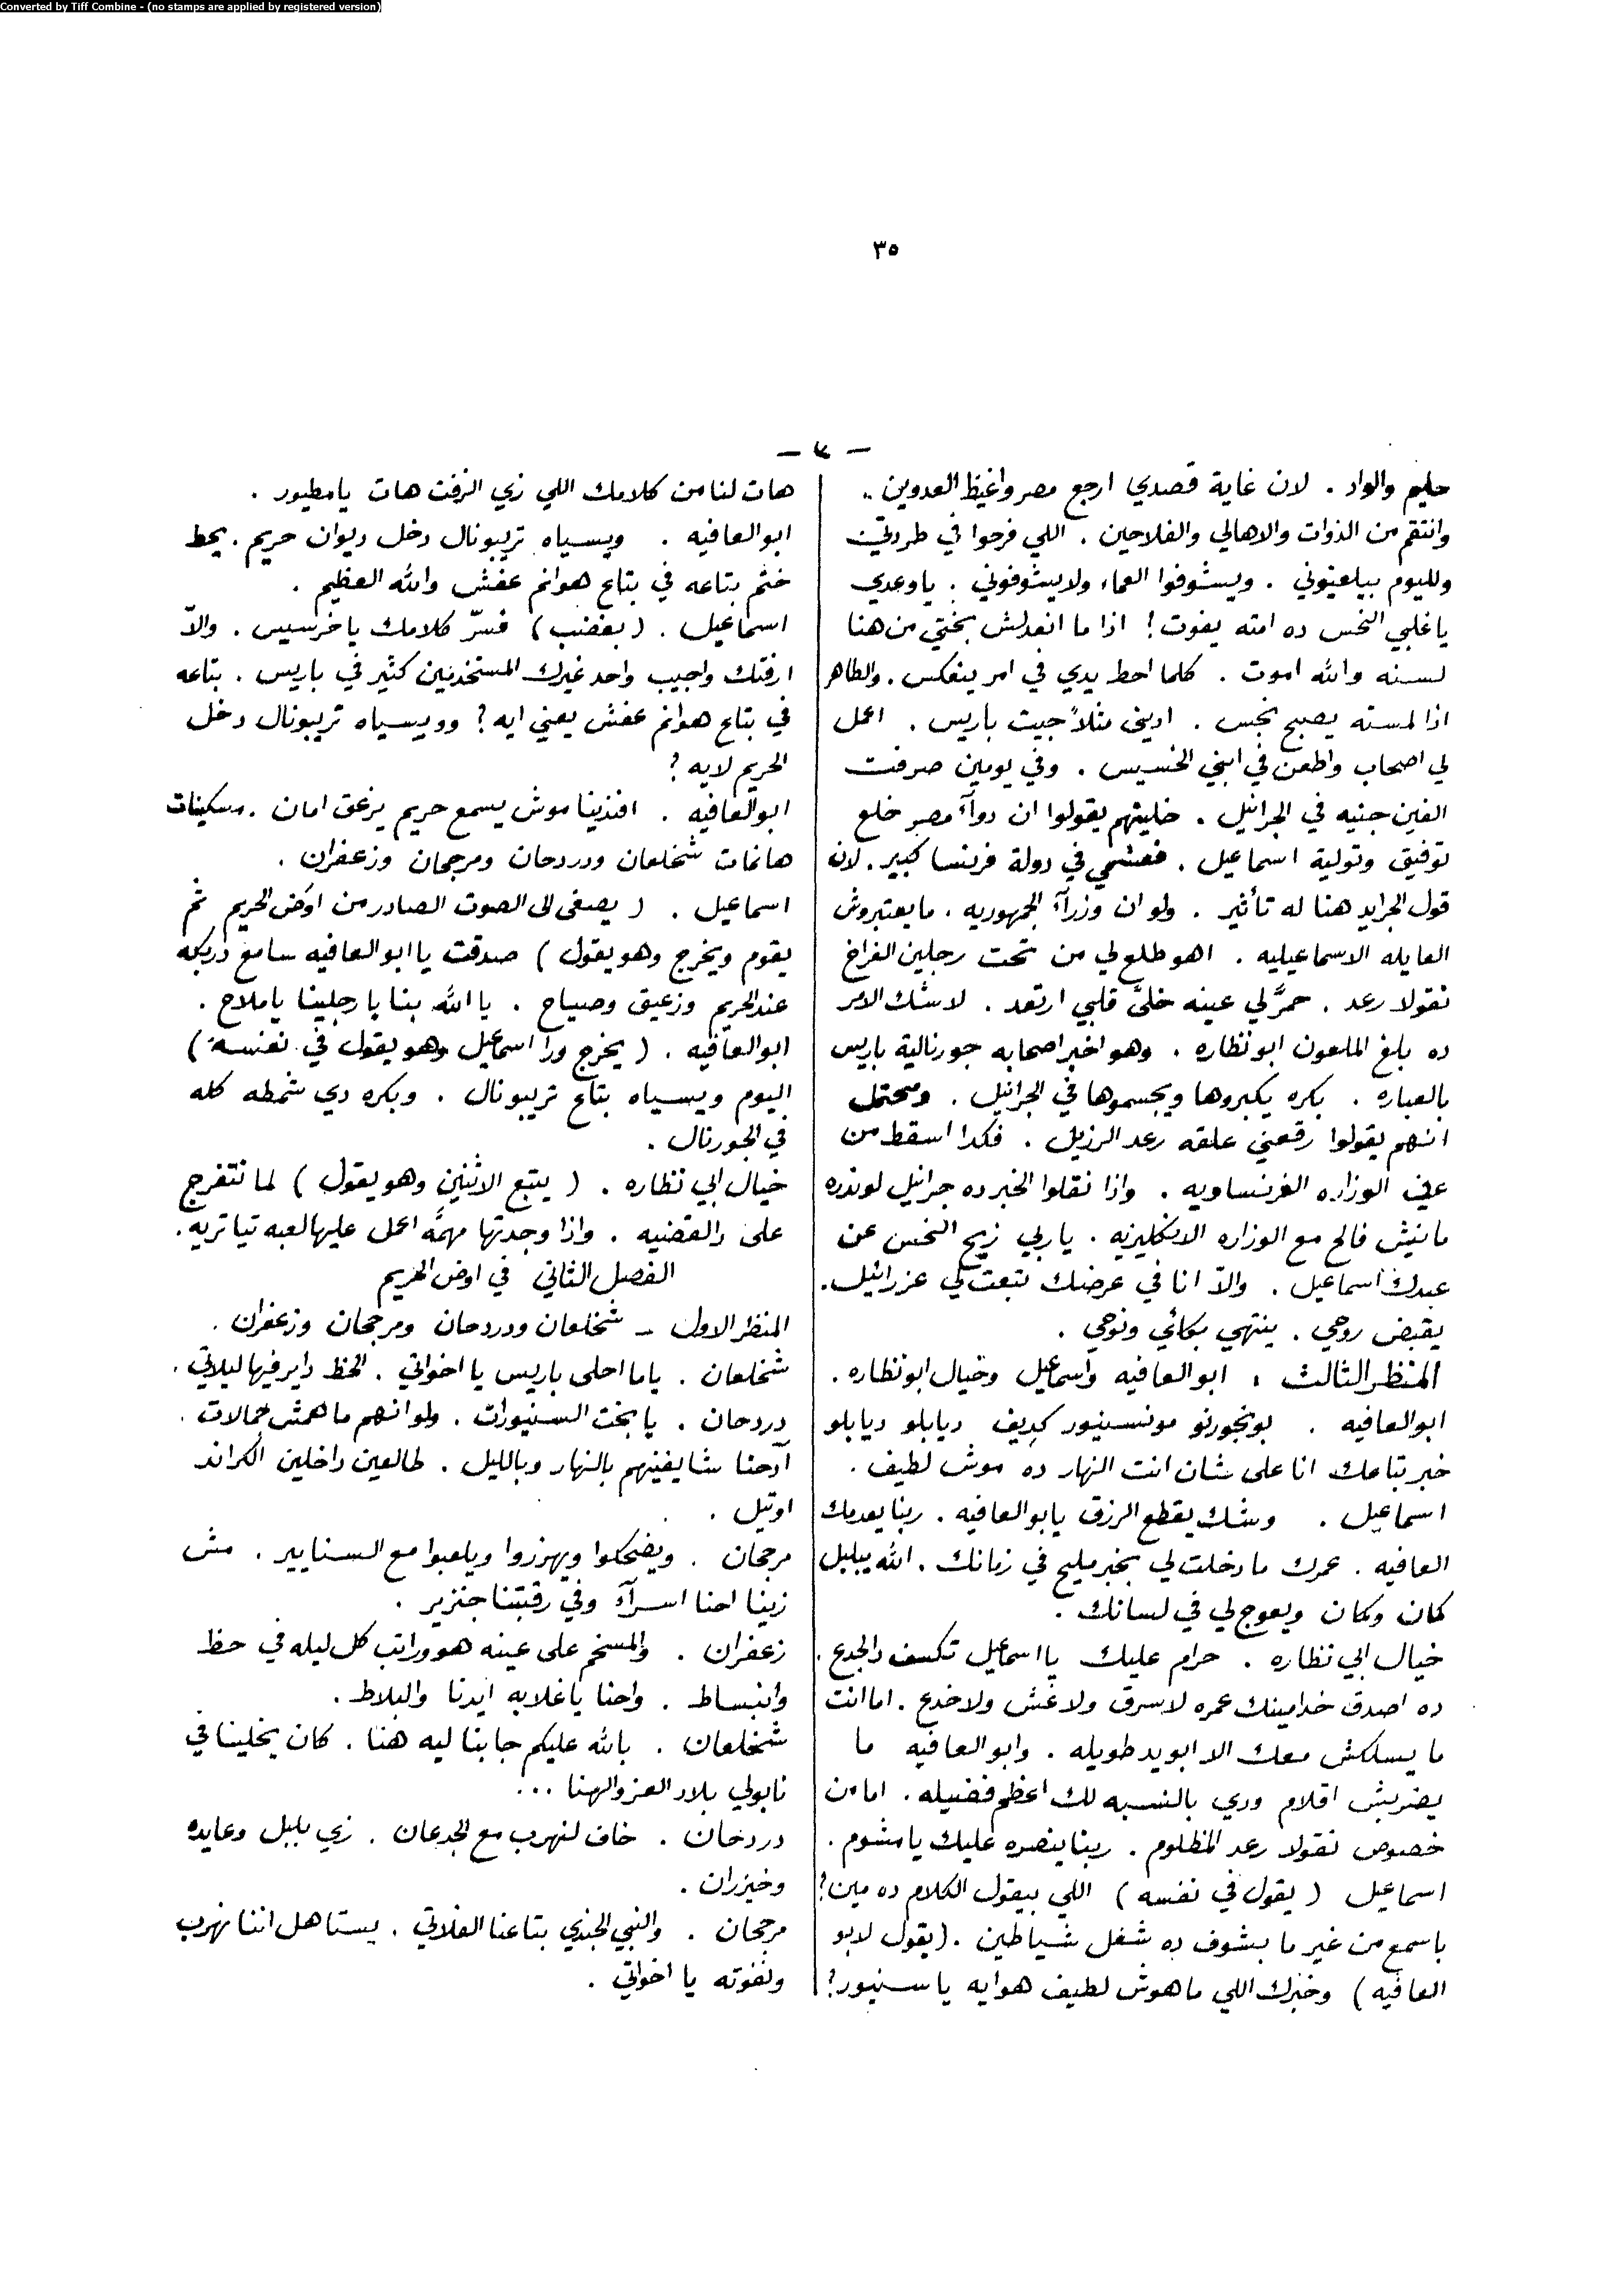 Converted by Tiff Combine - (no stamps are applied by registered version)
٣٥
حليم والواد . لان غاية قصدي ارجع مصر واغيظ العدوين ..
وانتقم من الذوات والاهالي والفلاحين . اللي فرحوا في طردتي
ولليوم بيلعنوني . ويشوفوا العماء ولا يشوفوني . يا وعدي
يا غلبي النحس ده امته يفوت ! اذا ما انعدلش بختي من هنا
لسنه والله اموت . كلما احط يدي في امر ينعكس . والطاهر
اذا لمسته يصبح نجس . اديني مثلاً جيت باريس . اعمل
لي اصحاب واطعن في ابني الخسيس . وفي يومين صرفت
الفين جنيه في الجرانيل . خليتهم يقولوا ان دوآء مصر خلع
توفيق وتولية اسماعيل . فعشمي في دولة فرنسا كبير . لان
قول الجرايد هنا له تأثير . ولو ان وزرآء الجمهوريه . ما يعتبروش
العايله الاسماعيليه . اهو طلع لي من تحت رجلين الفراخ
نقولا رعد . حمرّ لي عينه خلىّ قلبي ارتعد . لا شك الامر
ده بلغ الملعون ابو نظاره . وهو اخبر اصحابه جورنالية باريس
بالعباره . بكره يكبروها ويجسموها في الجرانيل . ومحتمل
انهم يقولوا رقعني علقه رعد الرزيل . فكدا اسقط من
عين الوزاره الفرنساويه . واذا نقلوا الخبر ده جرانيل لوندره
مانيش فالح مع الوزاره الانكليزيه . يا ربي زيح النحس عن
عبدك اسماعيل . والاّ انا في عرضك تبعت لي عزرائيل .
يقبض روحي . ينتهي بكائي ونوحي .
المنظر الثالث . ابو العافيه واسماعيل وخيال ابو نظاره .
ابو العافيه . بونجورنو مونسينيور كديف ديابلو ديابلو
خبر بتاعك انا على شان انت النهار ده موش لطيف .
اسماعيل . وشك يقطع الرزق يابو العافيه . ربنا يعدمك
العافيه . عمرك ما دخلت لي بخبر مليح في زمانك . الله يبليل
كمان وكمان ويعوج لي في لسانك .
خيال ابي نظاره . حرام عليك يا اسماعيل تكسف دالجدع .
ده اصدق خدامينك عمره لا سرق ولا غش ولا خدع . اما انت
ما يسلكش معك الا ابو يد طويله . وابو العافيه ما
يضربش اقلام ودي بالنسبه لك اعظم فضيله . اما من
خصوص نقولا رعد المظلوم . ربنا ينصره عليك يا مشوم .
اسماعيل ( يقول في نفسه ) اللي بيقول الكلام ده مين ؟
باسمع من غير ما بشوف ده شغل شياطين . ( يقول لابو
العافيه ) وخبرك اللي ماهوش لطيف هو ايه يا سنيور ؟
هات لنا من كلامك اللي زي الزفت هات يا مطيور .
ابو العافيه . ويسياه تريبونال دخل ديوان حريم . يحط
ختم بتاعه في بتاع هوانم عفش والله العظيم .
اسماعيل . ( بغضب ) فسرّ كلامك يا خرسيس . والاّ
ارفتك واجيب واحد غيرك المستخدمين كثير في باريس . بتاعه
في بتاع هوانم عفش يعني ايه ؟ وويسياه تريبونال دخل
الحريم لايه ؟
ابو العافيه . افندينا موش يسمع حريم يزعق امان . مسكينات
هانمات شخلعان ودردحان ومرجحان وزعفران .
اسماعيل . ( يصغى الى الصوت الصادر من اوض الحريم ثم
يقوم ويخرج وهو يقول ) صدقت يا ابو العافيه سامع دربكه
عند الحريم وزعيق وصياح . يا الله بنا يا رجلينا يا ملاح .
ابو العافيه . ( يخرج ورا اسماعيل وهو يقول في نفسه )
اليوم ويسياه بتاع تريبونال . وبكره دي شمطه كله
في الجورنال .
خيال ابي نظاره . ( يتبع الاثنين وهو يقول ) لما نتفرج
على دالقضيه . واذا وجدتها مهمّه اعمل عليها لعبه تياتريه .
الفصل الثاني في اوض الحريم
المنظر الاول – شخلعان ودردحان ومرجحان وزعفران .
شخلعان . ياما احلى باريس يا اخواتي . الحظ داير فيها ليلاتي .
دردحان . يا بخت السنيورات . ولو انهم ماهمش جمالات .
آدحنا شايفينهم بالنهار وبالليل . طالعين داخلين الكراند
اوتيل .
مرجحان . ويضحكوا ويهزروا ويلعبوا مع السنايير . مش
زينا احنا اسرآء وفي رقبتنا جنزير .
زعفران . والمسخم على عينه هو وراتب كل ليله في حظ
وانبساط . واحنا يا غلابه ايدنا والبلاط .
شخلعان . بالله عليكم جابنا ليه هنا . كان يخلينا في
نابولي بلاد العز والهنا ...
دردحان . خاف لنهرب مع الجدعان . زي بلبل وعايده
وخيزران .
مرجحان . والنبي الجندي بتاعنا الفلاتي . يستاهل اننا نهرب
ونفوته يا اخواتي .